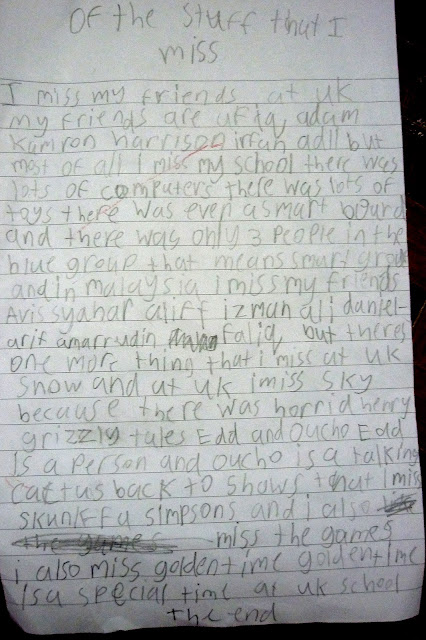 Of the stuff that I
miss
I miss my friends at uk
my friends are ufiq adam
kamron harrison irfah adil but
most of all I miss my school there was
lots of computers there was lots of
toys there was even a smart bourd
and there was only 3 people in the
blue group that means smart group
and in malaysia i miss my friends
Avis syahar aliff izman ali daniel
arif amarrudin Faliq but theres
one more thing that i miss at uk
snow and at uk i miss sky
because there was horrid henry
grizzly tales Edd and Oucho Edd
Is a person and oucho is a talking
cactus back to shows that I miss
skunk fu simpsons and i also
miss the games
i also miss goldentime goldentime
Is a special time at uk school
the end